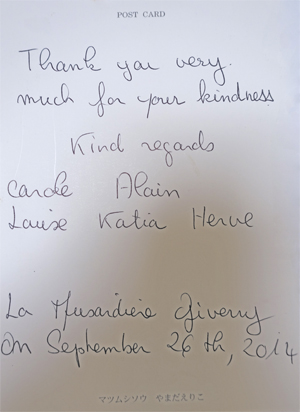 POST CARD
Thank you very.
much for your kindness
Kind regards
Carole Alain
Louise Katia Herve
La Musardiere Giverny
On September 26 th, 2014
マツムシソウ やまだえりこ